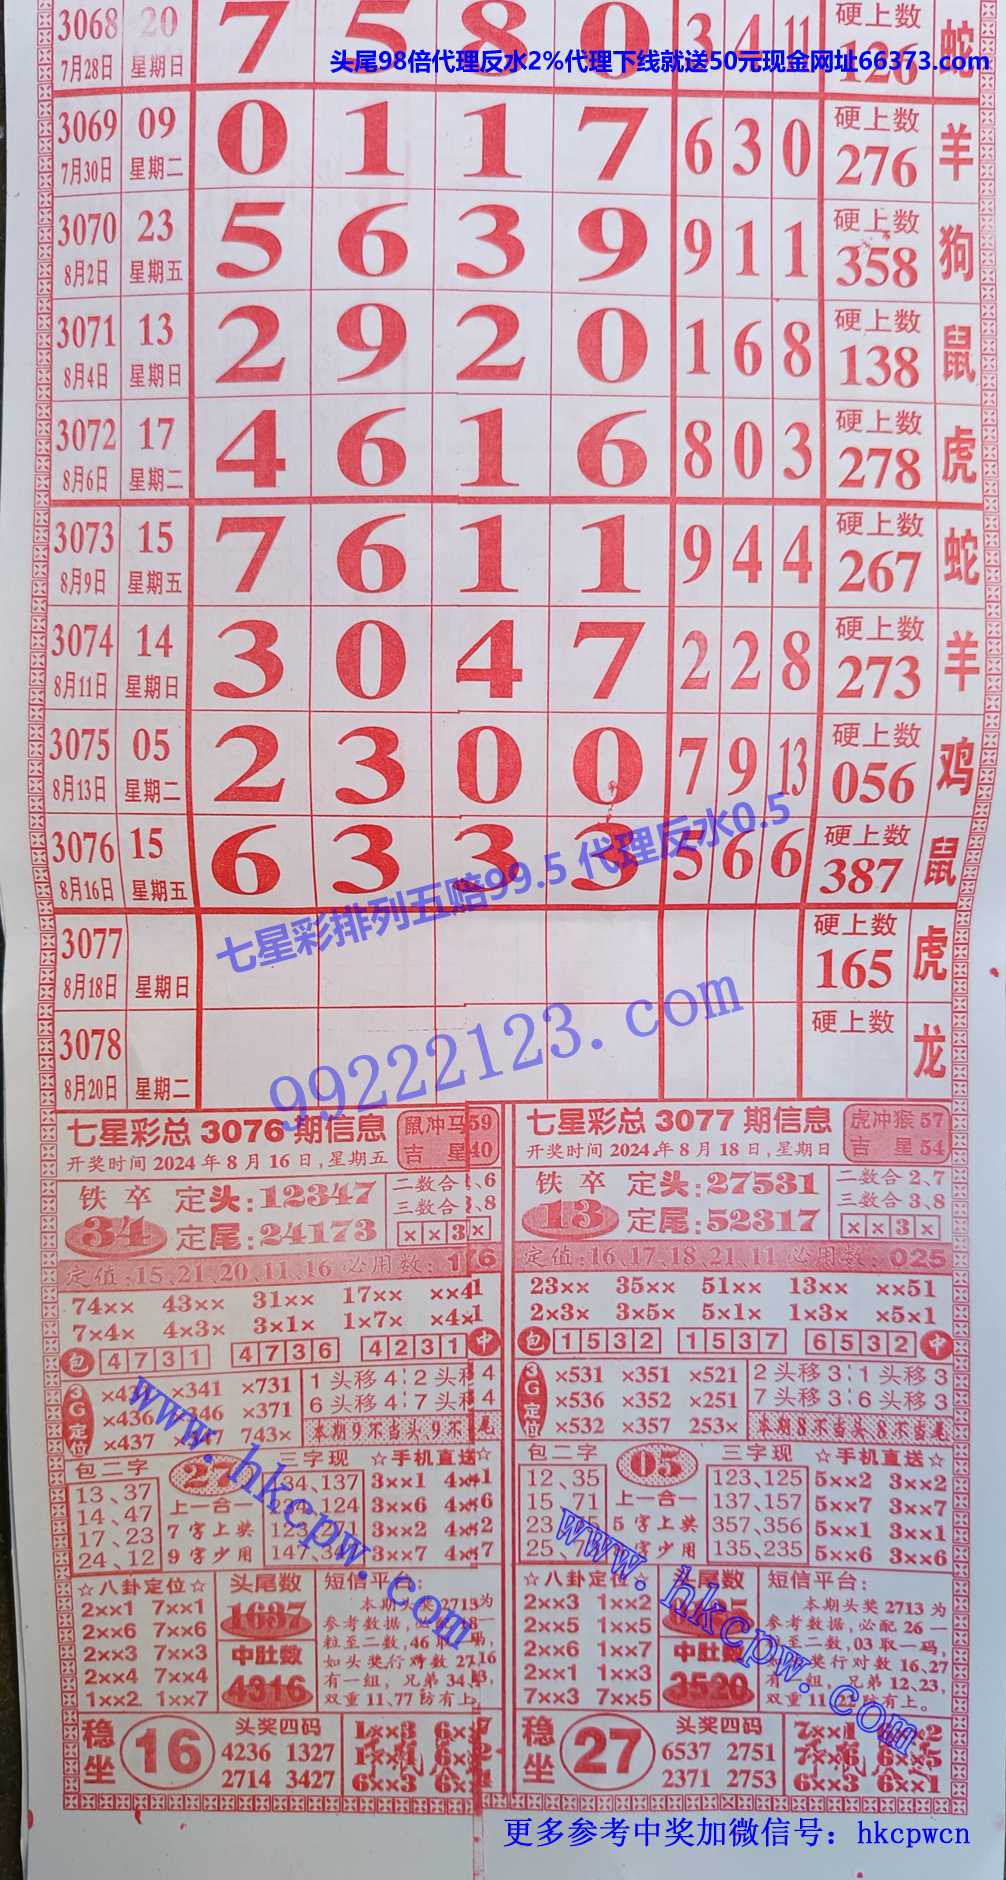 3068 20 7 5 8 0 3 4 11 硬上数 蛇
7月28日 星期日 126
头尾98倍代理反水2%代理下线就送50元现金网址66373.com
3069 09 0 1 1 7 6 3 0 硬上数 羊
7月30日 星期二 276
3070 23 5 6 3 9 9 1 1 硬上数 狗
8月2日 星期五 358
3071 13 2 9 2 0 1 6 8 硬上数 鼠
8月4日 星期日 138
3072 17 4 6 1 6 8 0 3 硬上数 虎
8月6日 星期二 278
3073 15 7 6 1 1 9 4 4 硬上数 蛇
8月9日 星期五 267
3074 14 3 0 4 7 2 2 8 硬上数 羊
8月11日 星期日 273
3075 05 2 3 0 0 7 9 13 硬上数 鸡
8月13日 星期二 056
3076 15 6 3 3 3 5 6 6 硬上数 鼠
8月16日 星期五 387
七星彩排列五赔99.5 代理反水0.5
3077 硬上数 虎
8月18日 星期日 165
99222123.com
3078 硬上数 龙
8月20日 星期二
七星彩总 3076 期信息 鼠冲马59
开奖时间 2024 年 8 月 16 日,星期五 吉 星40
铁 卒 定头:12347 二数合 、6
34 定尾:24173 三数合 、8
××3×
定值:15、21、20、11、16 必用数: 176
74×× 43×× 31×× 17×× ××41
7×4× 4×3× 3×1× 1×7× ×4×1
包 4731 4736 4231 中
3G定位
×341 ×731 1头移4 2头移4
×436 ×346 ×371 6头移4 7头移4
×437 743× 本期9不当头 9不 尾
包二字 27 三字现 ☆手机直送☆
13、37 134、137 3××1 4××1
14、47 上一合一 124 3××6 4××6
17、23 7 字上奖 3××2 4××2
24、12 9 字少用 3××7 4××7
☆八卦定位☆ 头尾数 短信平台:
2××1 7××1 1637 本期头奖2713为
2××6 7××6 参考数据,必配 一
2××3 7××3 中肚数 粒至二数,46取一码,
2××4 7××4 4316 如头奖行对数 27,16
1××2 1××7 有一组, 兄弟 34,
双重 11、77 防有上。
稳坐 16 头奖四码
4236 1327
2714 3427
1××3
1××1
6××3
七星彩总 3077 期信息 虎冲猴57
开奖时间 2024.年 8 月 18 日,星期日 吉 星54
铁 卒 定头:27531 二数合 2、7
13 定尾:52317 三数合 3、8
××3×
定值:16、17、18、21、11 必用数: 025
23×× 35×× 51×× 13×× ××51
2×3× 3×5× 5×1× 1×3× ×5×1
包 1532 1537 6532 中
3G定位
×531 ×351 ×521 2头移3 1头移3
×536 ×352 ×251 7头移3 6头移3
×532 ×357 253× 本期8不当头 8不当尾
包二字 05 三字现 ☆手机直送☆
12、35 123、125 5××2 3××2
15、71 上一合一 137、157 5××7 3××7
23、 5 字上奖 357、356 5××1 3××1
25、7 字少用 135、235 5××6 3××6
☆八卦定位☆ 头尾数 短信平台:
2××3 1××2 本期头奖 2713 为
2××5 1××5 参考数据,必配 26 一
2××6 1××7 中肚数 粒至二数,03 取一码,
2××1 1××3 3520 如头奖行对数 16、27
7××3 7××5 有一组, 兄弟 12、23,
双重 11、22 防有上。
稳坐 27 头奖四码
6537 2751
2371 2753
7××1 6××2
7××6 6××5
6××3 6××1
www.hkcpw.com
www.hkcpw.com
更多参考中奖加微信号：hkcpwcn